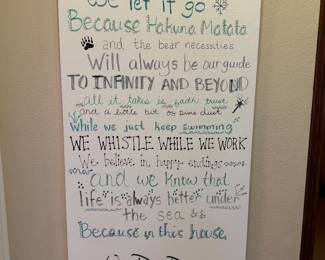 We let it go
Because Hakuna Matata
and the bear necessities
Will always be our guide
TO INFINITY AND BEYOND
all it takes is faith trust
and a little bit of pixie dust
While we just keep swimming
WE WHISTLE WHILE WE WORK
We believe in happy endings
and we know that
life is always better under
the sea &&
Because in this house